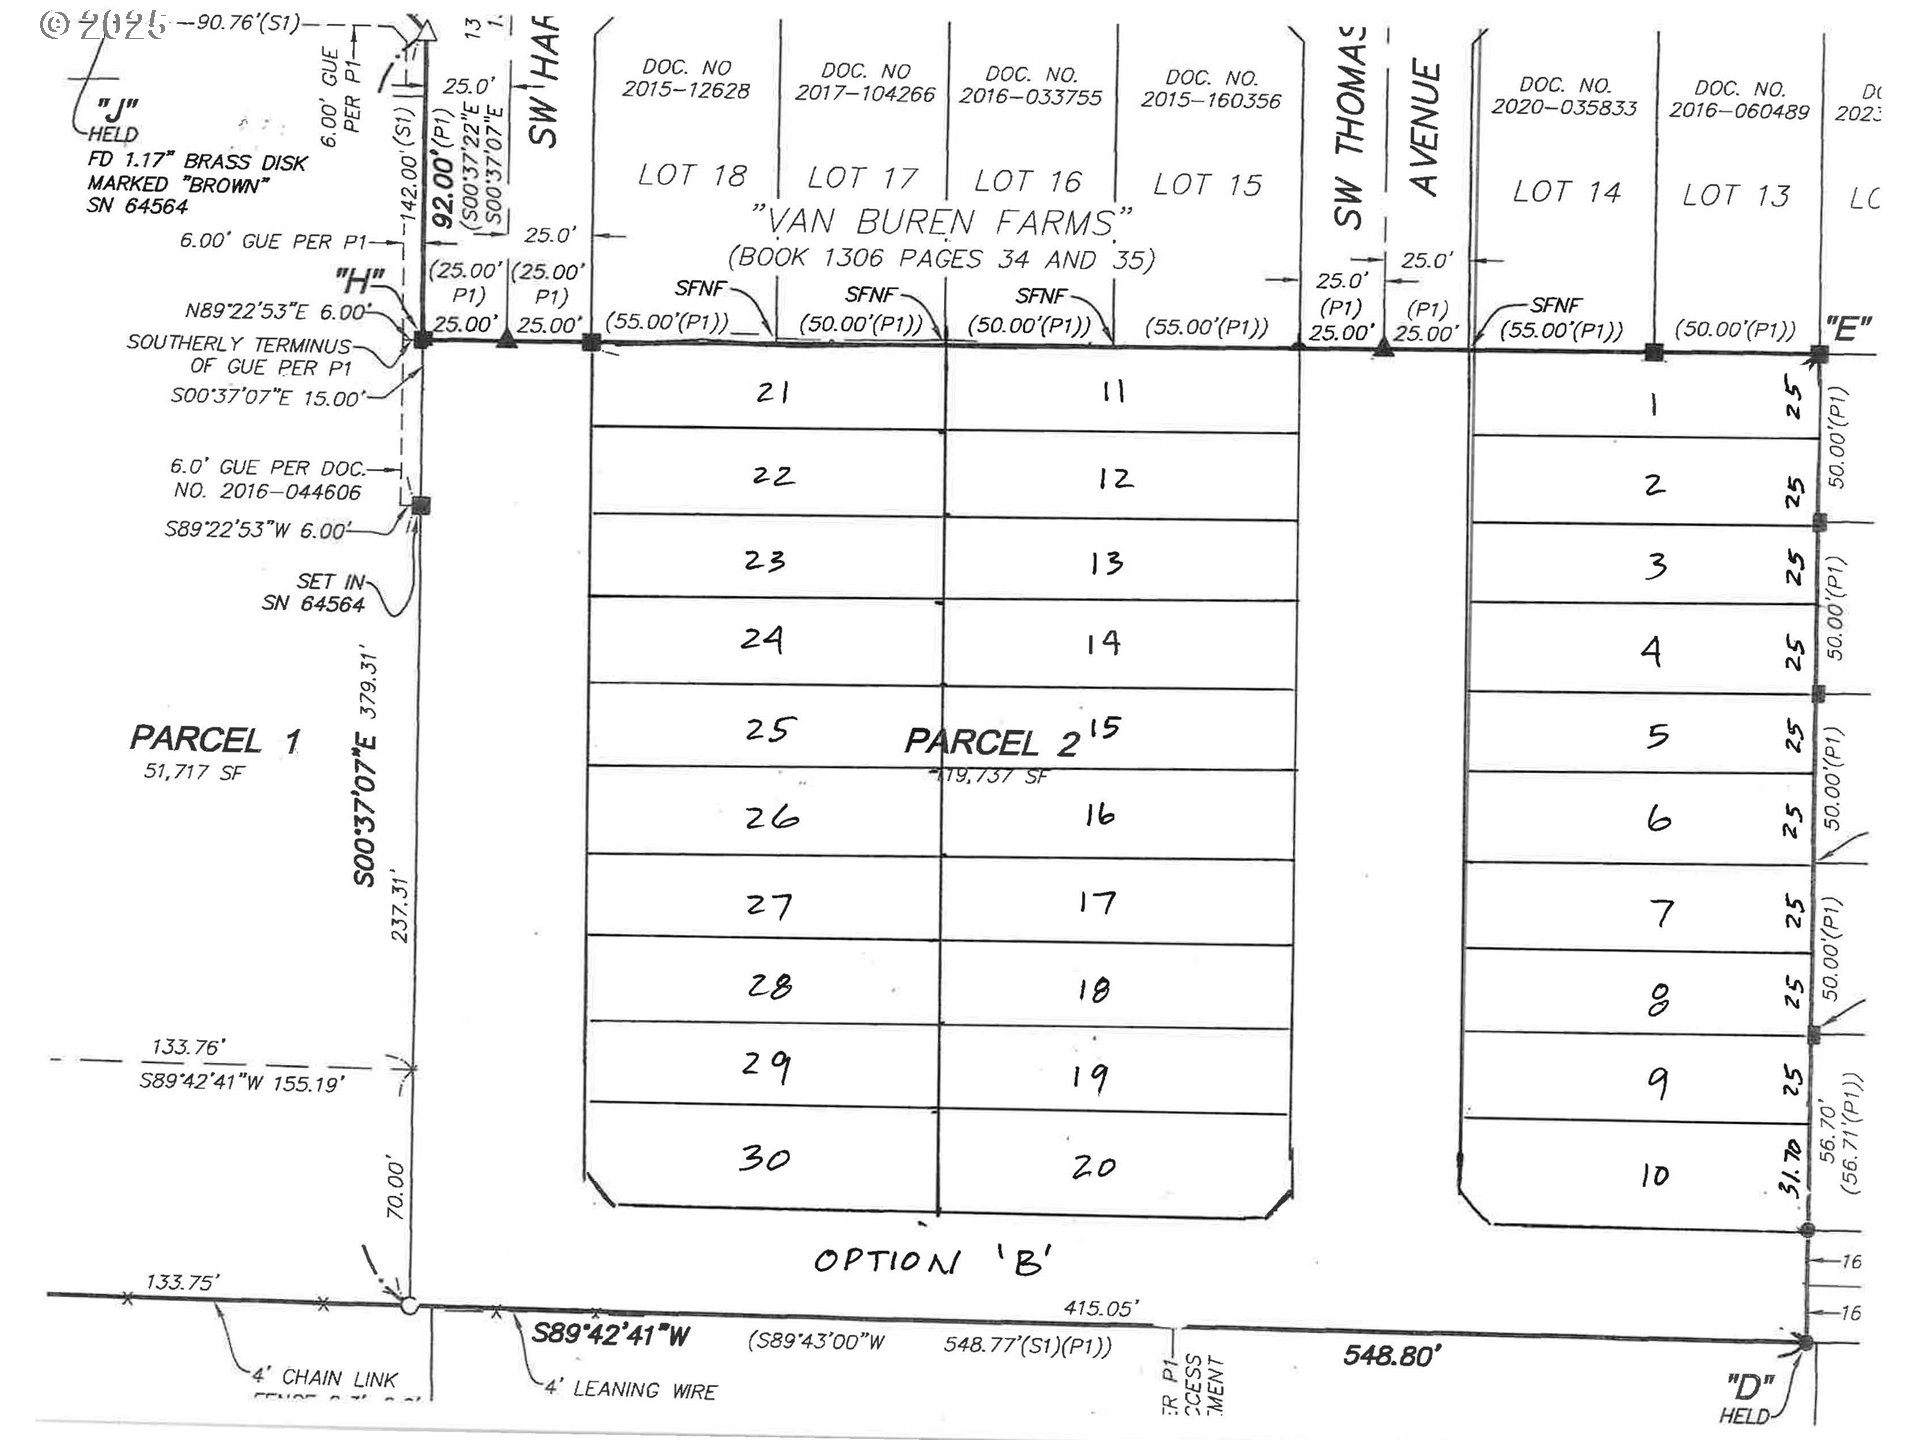 © 2025
90.76'(S1)
6.00' GUE
PER P1
25.0'
13
SW HAR
"J"
HELD
FD 1.17" BRASS DISK
MARKED "BROWN"
SN 64564
142.00'(S1)
92.00'(P1)
(S00°37'22"E
S00°37'07"E
DOC. NO
2015-12628
DOC. NO
2017-104266
DOC. NO.
2016-033755
DOC. NO.
2015-160356
SW THOMAS
AVENUE
DOC. NO.
2020-035833
DOC. NO.
2016-060489
LOT 18
LOT 17
LOT 16
LOT 15
LOT 14
LOT 13
"VAN BUREN FARMS"
(BOOK 1306 PAGES 34 AND 35)
6.00' GUE PER P1
25.0'
25.0'
25.0'
"H"
(25.00'
P1)
25.00'
(25.00'
P1)
25.00'
SFNF
SFNF
SFNF
SFNF
(P1)
25.00'
(P1)
25.00'
(55.00'(P1))
(50.00'(P1))
(50.00'(P1))
(55.00'(P1))
(55.00'(P1))
(50.00'(P1))
"E"
N89°22'53"E 6.00'
SOUTHERLY TERMINUS
OF GUE PER P1
S00°37'07"E 15.00'
6.0' GUE PER DOC.
NO. 2016-044606
S89°22'53"W 6.00'
SET IN
SN 64564
21
11
1
25
50.00'(P1)
22
12
2
25
23
13
3
25
50.00'(P1)
24
14
4
25
25
15
5
25
50.00'(P1)
26
16
6
25
27
17
7
25
50.00'(P1)
28
18
8
25
29
19
9
25
56.70'
(56.71'(P1))
30
20
10
31.70
PARCEL 1
51,717 SF
PARCEL 2
119,737 SF
S00°37'07"E 379.31'
237.31'
133.76'
S89°42'41"W 155.19'
70.00'
OPTION 'B'
16
16
133.75'
415.05'
S89°42'41"W
(S89°43'00"W
548.77'(S1)(P1))
548.80'
4' CHAIN LINK
4' LEANING WIRE
"D"
HELD